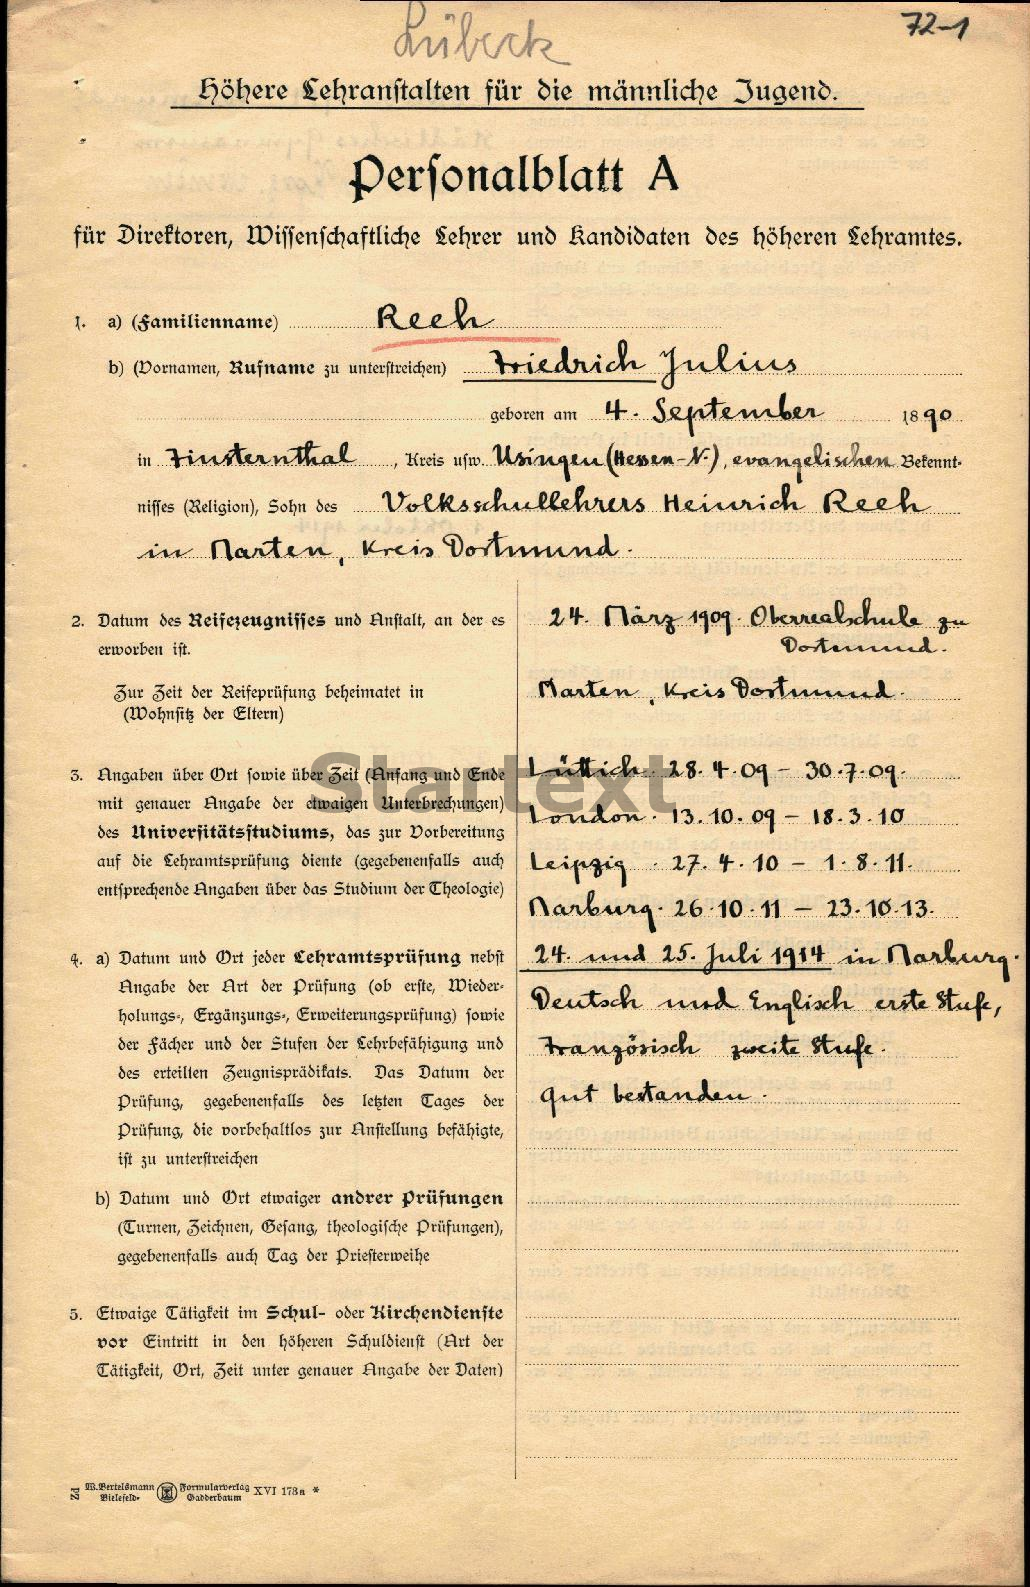 Lübeck
72-1
Höhere Lehranstalten für die männliche Jugend.
Personalblatt A
für Direktoren, Wissenschaftliche Lehrer und Kandidaten des höheren Lehramtes.
1. a) (Familienname) Reeh
b) (Vornamen, Rufname zu unterstreichen) Friedrich Julius
geboren am 4. September 1890
in Finsternthal, Kreis usw. Usingen (Hessen-N.), evangelischen Bekennt-
nisses (Religion), Sohn des Volksschullehrers Heinrich Reeh
in Marten, Kreis Dortmund.
2. Datum des Reifezeugnisses und Anstalt, an der es
erworben ist.
24. März 1909. Oberrealschule zu
Dortmund.
Zur Zeit der Reifeprüfung beheimatet in
(Wohnsitz der Eltern)
Marten, Kreis Dortmund.
3. Angaben über Ort sowie über Zeit (Anfang und Ende
mit genauer Angabe der etwaigen Unterbrechungen)
des Universitätsstudiums, das zur Vorbereitung
auf die Lehramtsprüfung diente (gegebenenfalls auch
entsprechende Angaben über das Studium der Theologie)
Lüttich. 28.4.09 – 30.7.09.
London. 13.10.09 – 18.3.10
Leipzig. 27.4.10 – 1.8.11.
Marburg. 26.10.11 – 23.10.13.
4. a) Datum und Ort jeder Lehramtsprüfung nebst
Angabe der Art der Prüfung (ob erste, Wieder-
holungs-, Ergänzungs-, Erweiterungsprüfung) sowie
der Fächer und der Stufen der Lehrbefähigung und
des erteilten Zeugnisprädikats. Das Datum der
Prüfung, gegebenenfalls des letzten Tages der
Prüfung, die vorbehaltlos zur Anstellung befähigte,
ist zu unterstreichen
24. und 25. Juli 1914 in Marburg.
Deutsch und Englisch erste Stufe,
Französisch zweite Stufe.
Gut bestanden.
b) Datum und Ort etwaiger andrer Prüfungen
(Turnen, Zeichnen, Gesang, theologische Prüfungen),
gegebenenfalls auch Tag der Priesterweihe
5. Etwaige Tätigkeit im Schul- oder Kirchendienste
vor Eintritt in den höheren Schuldienst (Art der
Tätigkeit, Ort, Zeit unter genauer Angabe der Daten)
Zd W. Bertelsmann Formularverlag XVI 173a *
Bielefeld- Gadderbaum
Startext